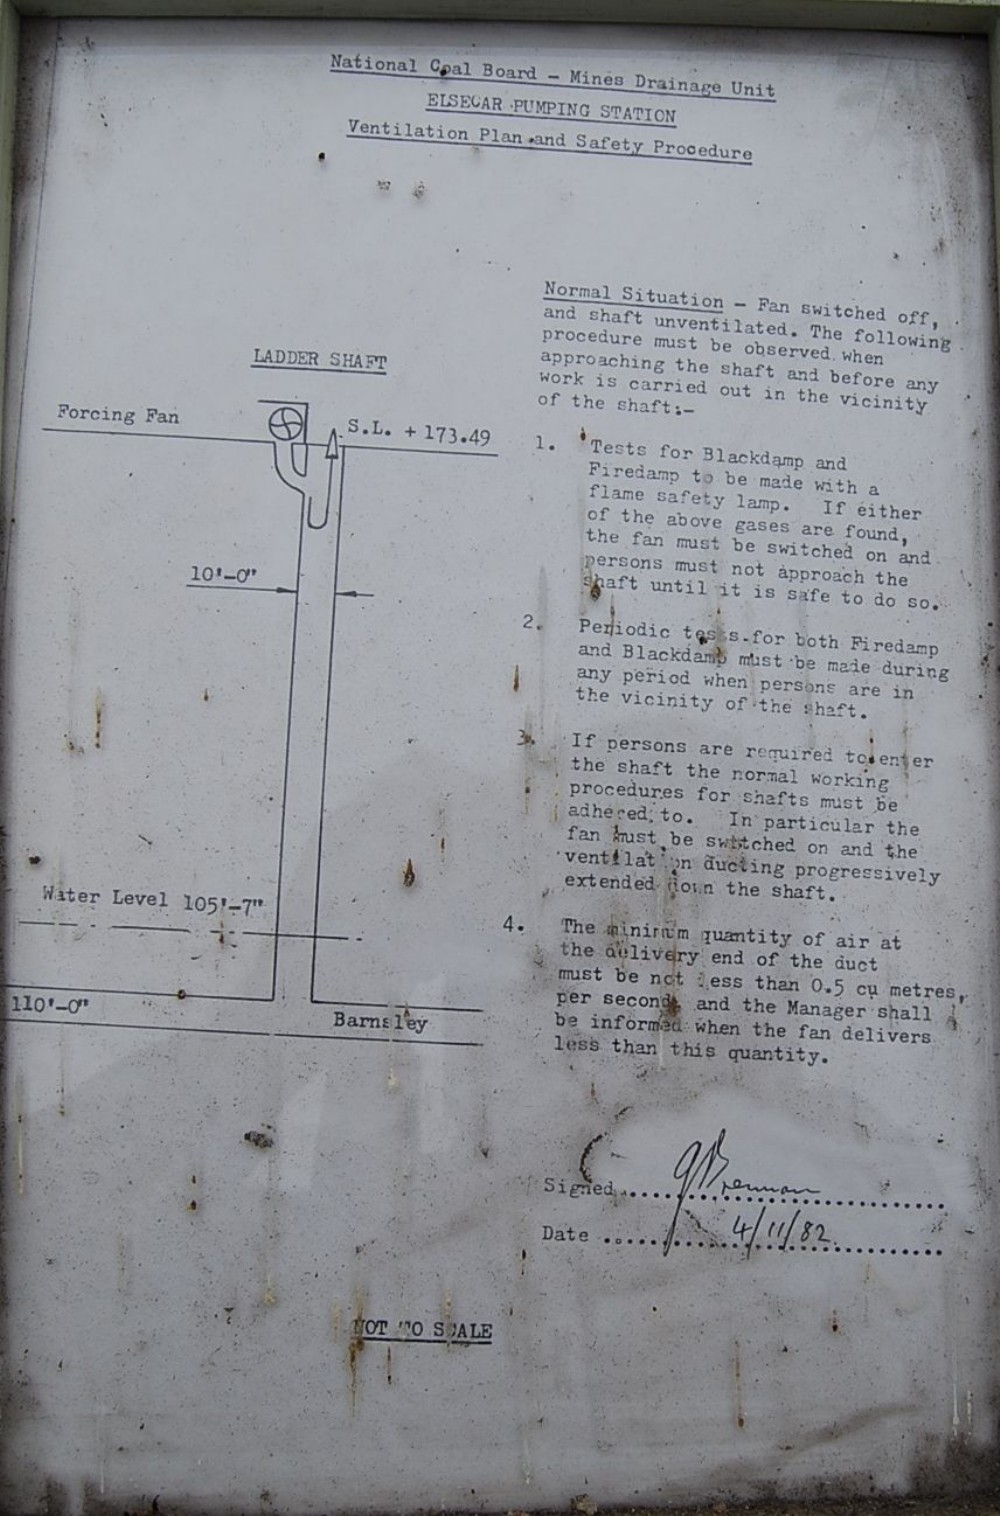 National Coal Board - Mines Drainage Unit
ELSECAR PUMPING STATION
Ventilation Plan and Safety Procedure
Normal Situation - Fan switched off,
and shaft unventilated. The following
procedure must be observed when
approaching the shaft and before any
work is carried out in the vicinity
of the shaft:-
LADDER SHAFT
Forcing Fan
S.L. + 173.49
10'-0"
Water Level 105'-7"
110'-0"
Barnsley
1. Tests for Blackdamp and
Firedamp to be made with a
flame safety lamp. If either
of the above gases are found,
the fan must be switched on and
persons must not approach the
shaft until it is safe to do so.
2. Periodic tests for both Firedamp
and Blackdamp must be made during
any period when persons are in
the vicinity of the shaft.
3. If persons are required to enter
the shaft the normal working
procedures for shafts must be
adhered to. In particular the
fan must be switched on and the
ventilation ducting progressively
extended down the shaft.
4. The minimum quantity of air at
the delivery end of the duct
must be not less than 0.5 cu metres,
per second and the Manager shall
be informed when the fan delivers
less than this quantity.
Signed GBrennan
Date 4/11/82
NOT TO SCALE